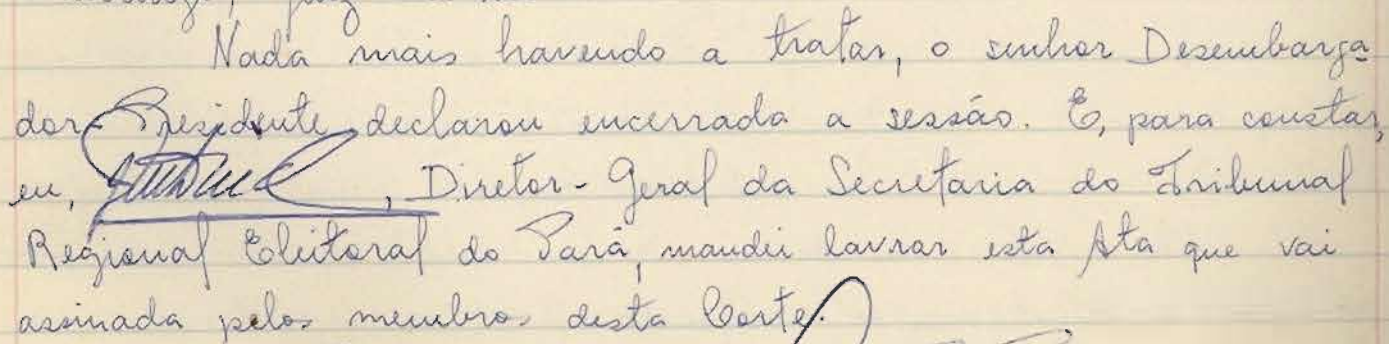 Nada mais havendo a tratar, o senhor Desembarga
dor-Presidente declarou encerrada a sessão. E, para constar,
eu, , Diretor-Geral da Secretaria do Tribunal
Regional Eleitoral do Pará, mandei lavrar esta Ata que vai
assinada pelos membros desta Corte.